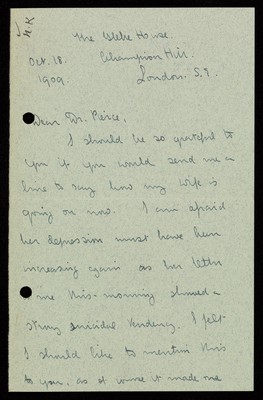 The Glebe House.
Oct. 18. Champion Hill.
1909. London. S.E.
Dear Dr. Pierce,
I should be so grateful to
you if you would send me a
line to say how my wife is
going on now. I am afraid
her depression must have been
increasing again as her letter
to me this morning showed a
strong suicidal tendency. I felt
I should like to mention this
to you, as of course it made me